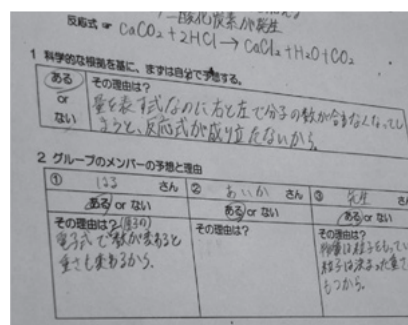 二酸化炭素が発生
反応式 or CaCO₂+2HCl→CaCl₂+H₂O+CO₂
1 科学的な根拠を基に、まずは自分で予想する。
ある
or
ない
その理由は?
量を表す式なのに右と左で分子の数が合わなくなってし
まうと、反応式が成り立たないから。
2 グループのメンバーの予想と理由
① はる さん ② あいか さん ③ 先生
ある or ない ある or ない ある or ない
その理由は?(原子の)
電子式で数が変わると
重さも変わるから。
その理由は?
その理由は?
物質は粒子をもってい
粒子は決まった重さ
もつから。